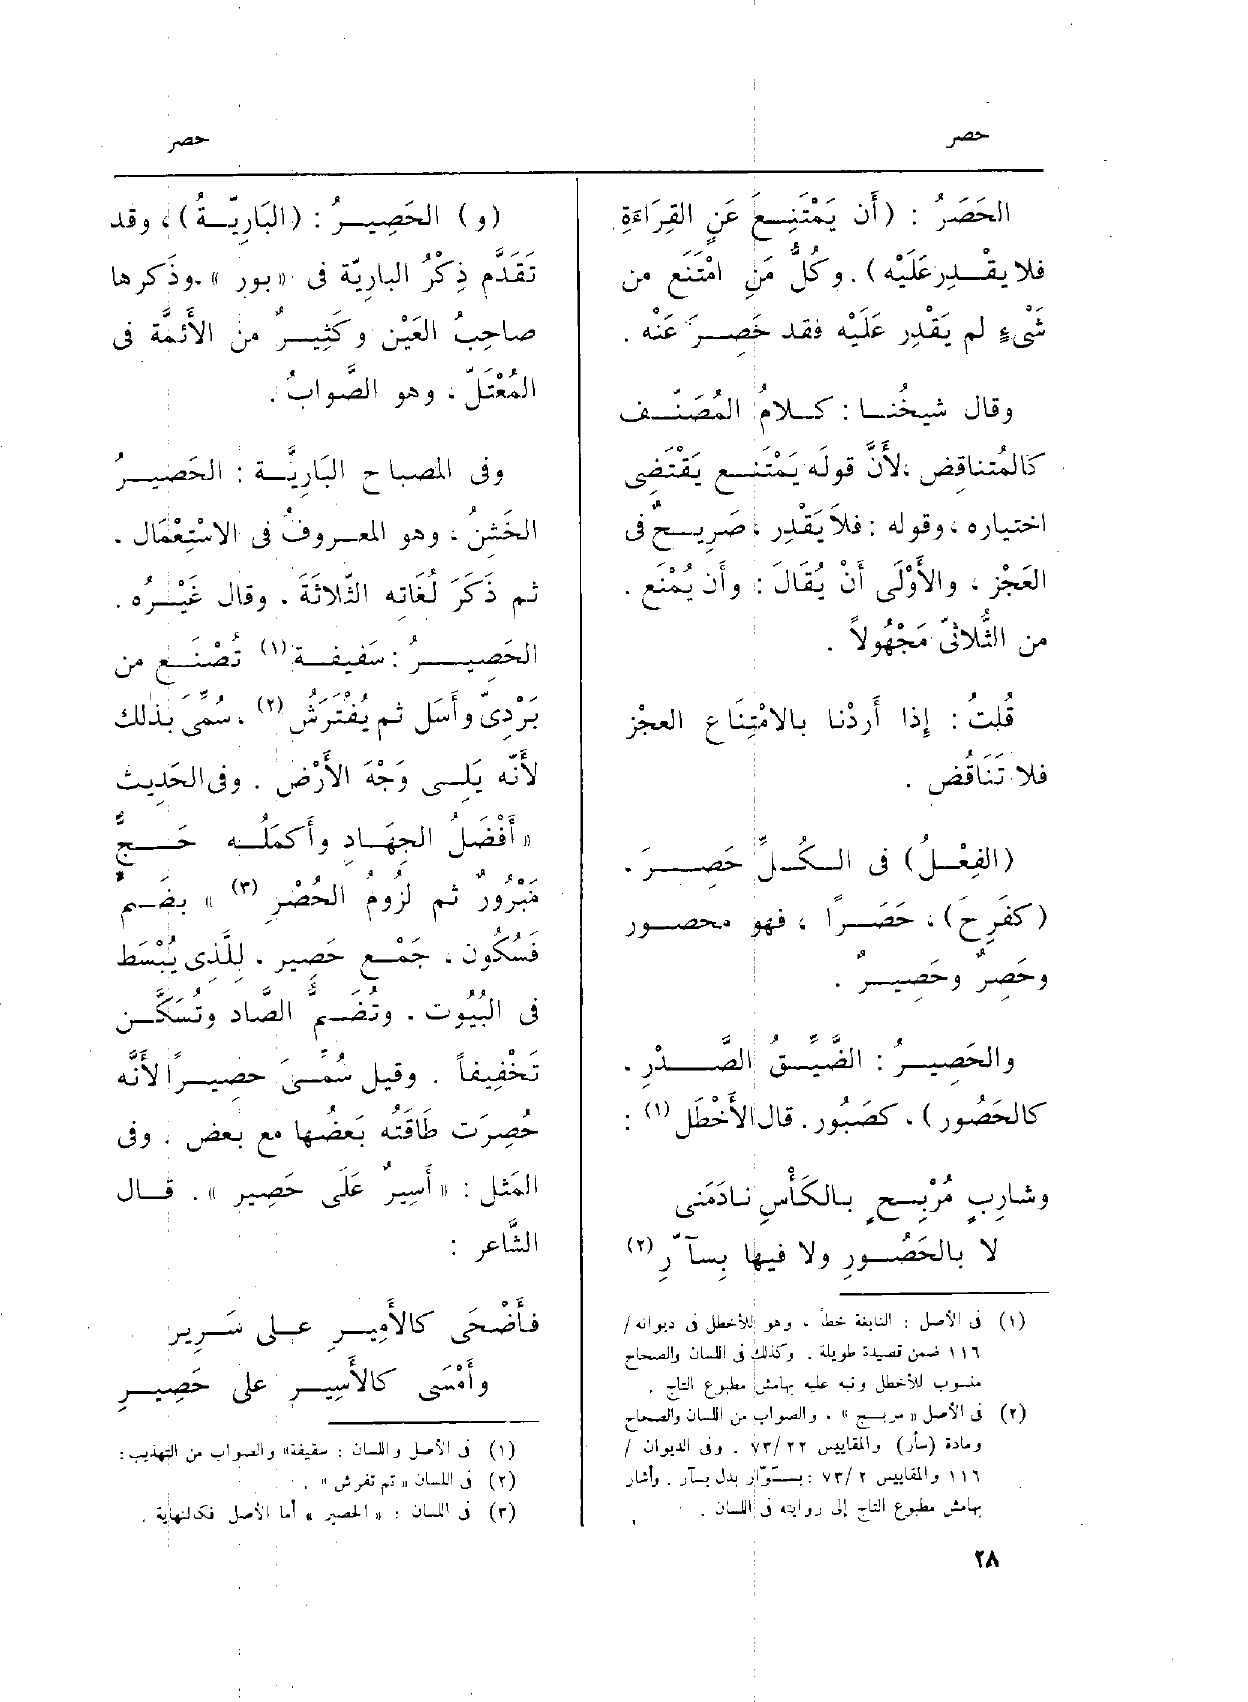 حصر
حصر
الحَصَرُ : (أَن يَمْتَنِـعَ عَنِ القِرَاءَةِ
فلا يقْـدِر عَلَيْه) . وكُلُّ مَنِ امْتَنَع من
شَيْءٍ لم يَقْدِر عَلَيْه فقد حَصِـرَ عَنْه .
وقال شيخُنـا : كـلامُ المُصَنّـف
كالمُتناقِض ،لأَنَّ قولَه يَمْتَنـع يَقْتَضِى
اختياره ، وقوله : فلاَ يَقْدِر ، صَرِيـحٌ فى
العَجْز ، والأَوْلَى أَنْ يُقَالَ : وأَن يُمْنَع .
من الثُّلاثىّ مَجْهُولاً .
قُلتُ : إذا أَردْنا بالامْتِنَاع العجْز
فلا تَنَاقُض .
(الفِعْـلُ) فى الـكُـلِّ حَصِـرَ .
(كفَرِحَ) ، حَصَـرًا ، فهو محصـور
وحَصِرٌ وحَصِيـرٌ .
والحَصِيـرُ : الضَّيِّـقُ الصَّـدْرِ .
كالحَصُور) . كصَبُور . قال الأَخْطَل (١) :
وشارِبٍ مُرْبِـحٍ بالكَأْسِ نادَمَنى
لا بالحَصُـورِ ولا فيها بِسآّرِ (٢)
(١) فى الأصل : النابغة خطأ ، وهو للأخطل فى ديوانه /
١١٦ ضمن قصيدة طويلة . وكذلك فى اللسان والصحاح
منسوب للأخطل ونبه عليه بهامش مطبوع التاج .
(٢) فى الأصل « مربـج » . والصواب من اللسان والصحاح
ومادة (سأر) والمقاييس ٧٣/٢٢ . وفى الديوان /
١١٦ والمقاييس ٧٣/٢ : بسـَوّار بدل بسآر . وأشار
بهامش مطبوع التاج إلى روايته فى اللسان .
(و) الحَصِيـرُ : (البَارِيّـةُ) ، وقد
تَقَدَّم ذِكْرُ البارِيّة فى «بور » .وذَكرها
صاحِبُ العَيْن وكَثِيـرٌ من الأَئمَّة فى
المُعْتَلّ ، وهو الصَّوابُ .
وفى المصباح البَارِيَّـة : الحَصِيـرُ
الخَشِنُ ، وهو المعـروفُ فى الاسْتِعْمَال .
ثم ذَكَرَ لُغَاتِه الثّلاثَةَ . وقال غَيْـرُه .
الحَصِيـرُ : سَفيفـة (١) تُصْنَـع من
بَرْدِىّ وأَسَل ثم يُفْتَرَشُ (٢) ، سُمِّىَ بذلك
لأَنّه يَلِـى وَجْهَ الأَرْض . وفى الحَدِيث
« أَفْضَلُ الجِهَـادِ وأَكمَلُـه حَـجٌّ
مَبْرُورٌ ثم لزُومُ الحُصْرِ (٣) » بضَـم
فَسُكُون ، جَمْـع حَصِير . لِلَّذى يُبْسَط
فى البُيُوت . وتُضَـمُّ الصَّاد وتُسَكَّـن
تَخْفِيفاً . وقيل سُمِّـىَ حصِيـرًا لأَنَّه
حُصِرَت طَاقَتُه بَعضُها مع بعض . وفى
المَثل : « أَسِيرٌ عَلَى حَصِير » . قـال
الشَّاعر :
فأَضْحَى كالأَمِيـرِ علـى سَرِير
وأَمْسَى كالأَسِيـر على حَصِيـرِ
(١) فى الأصل واللسان : سقيفة» والصواب من التهذيب :
(٢) فى اللسان « ثم تفرش » .
(٣) فى اللسان : « الحصير » أما الأصل فكالنهاية .
٢٨